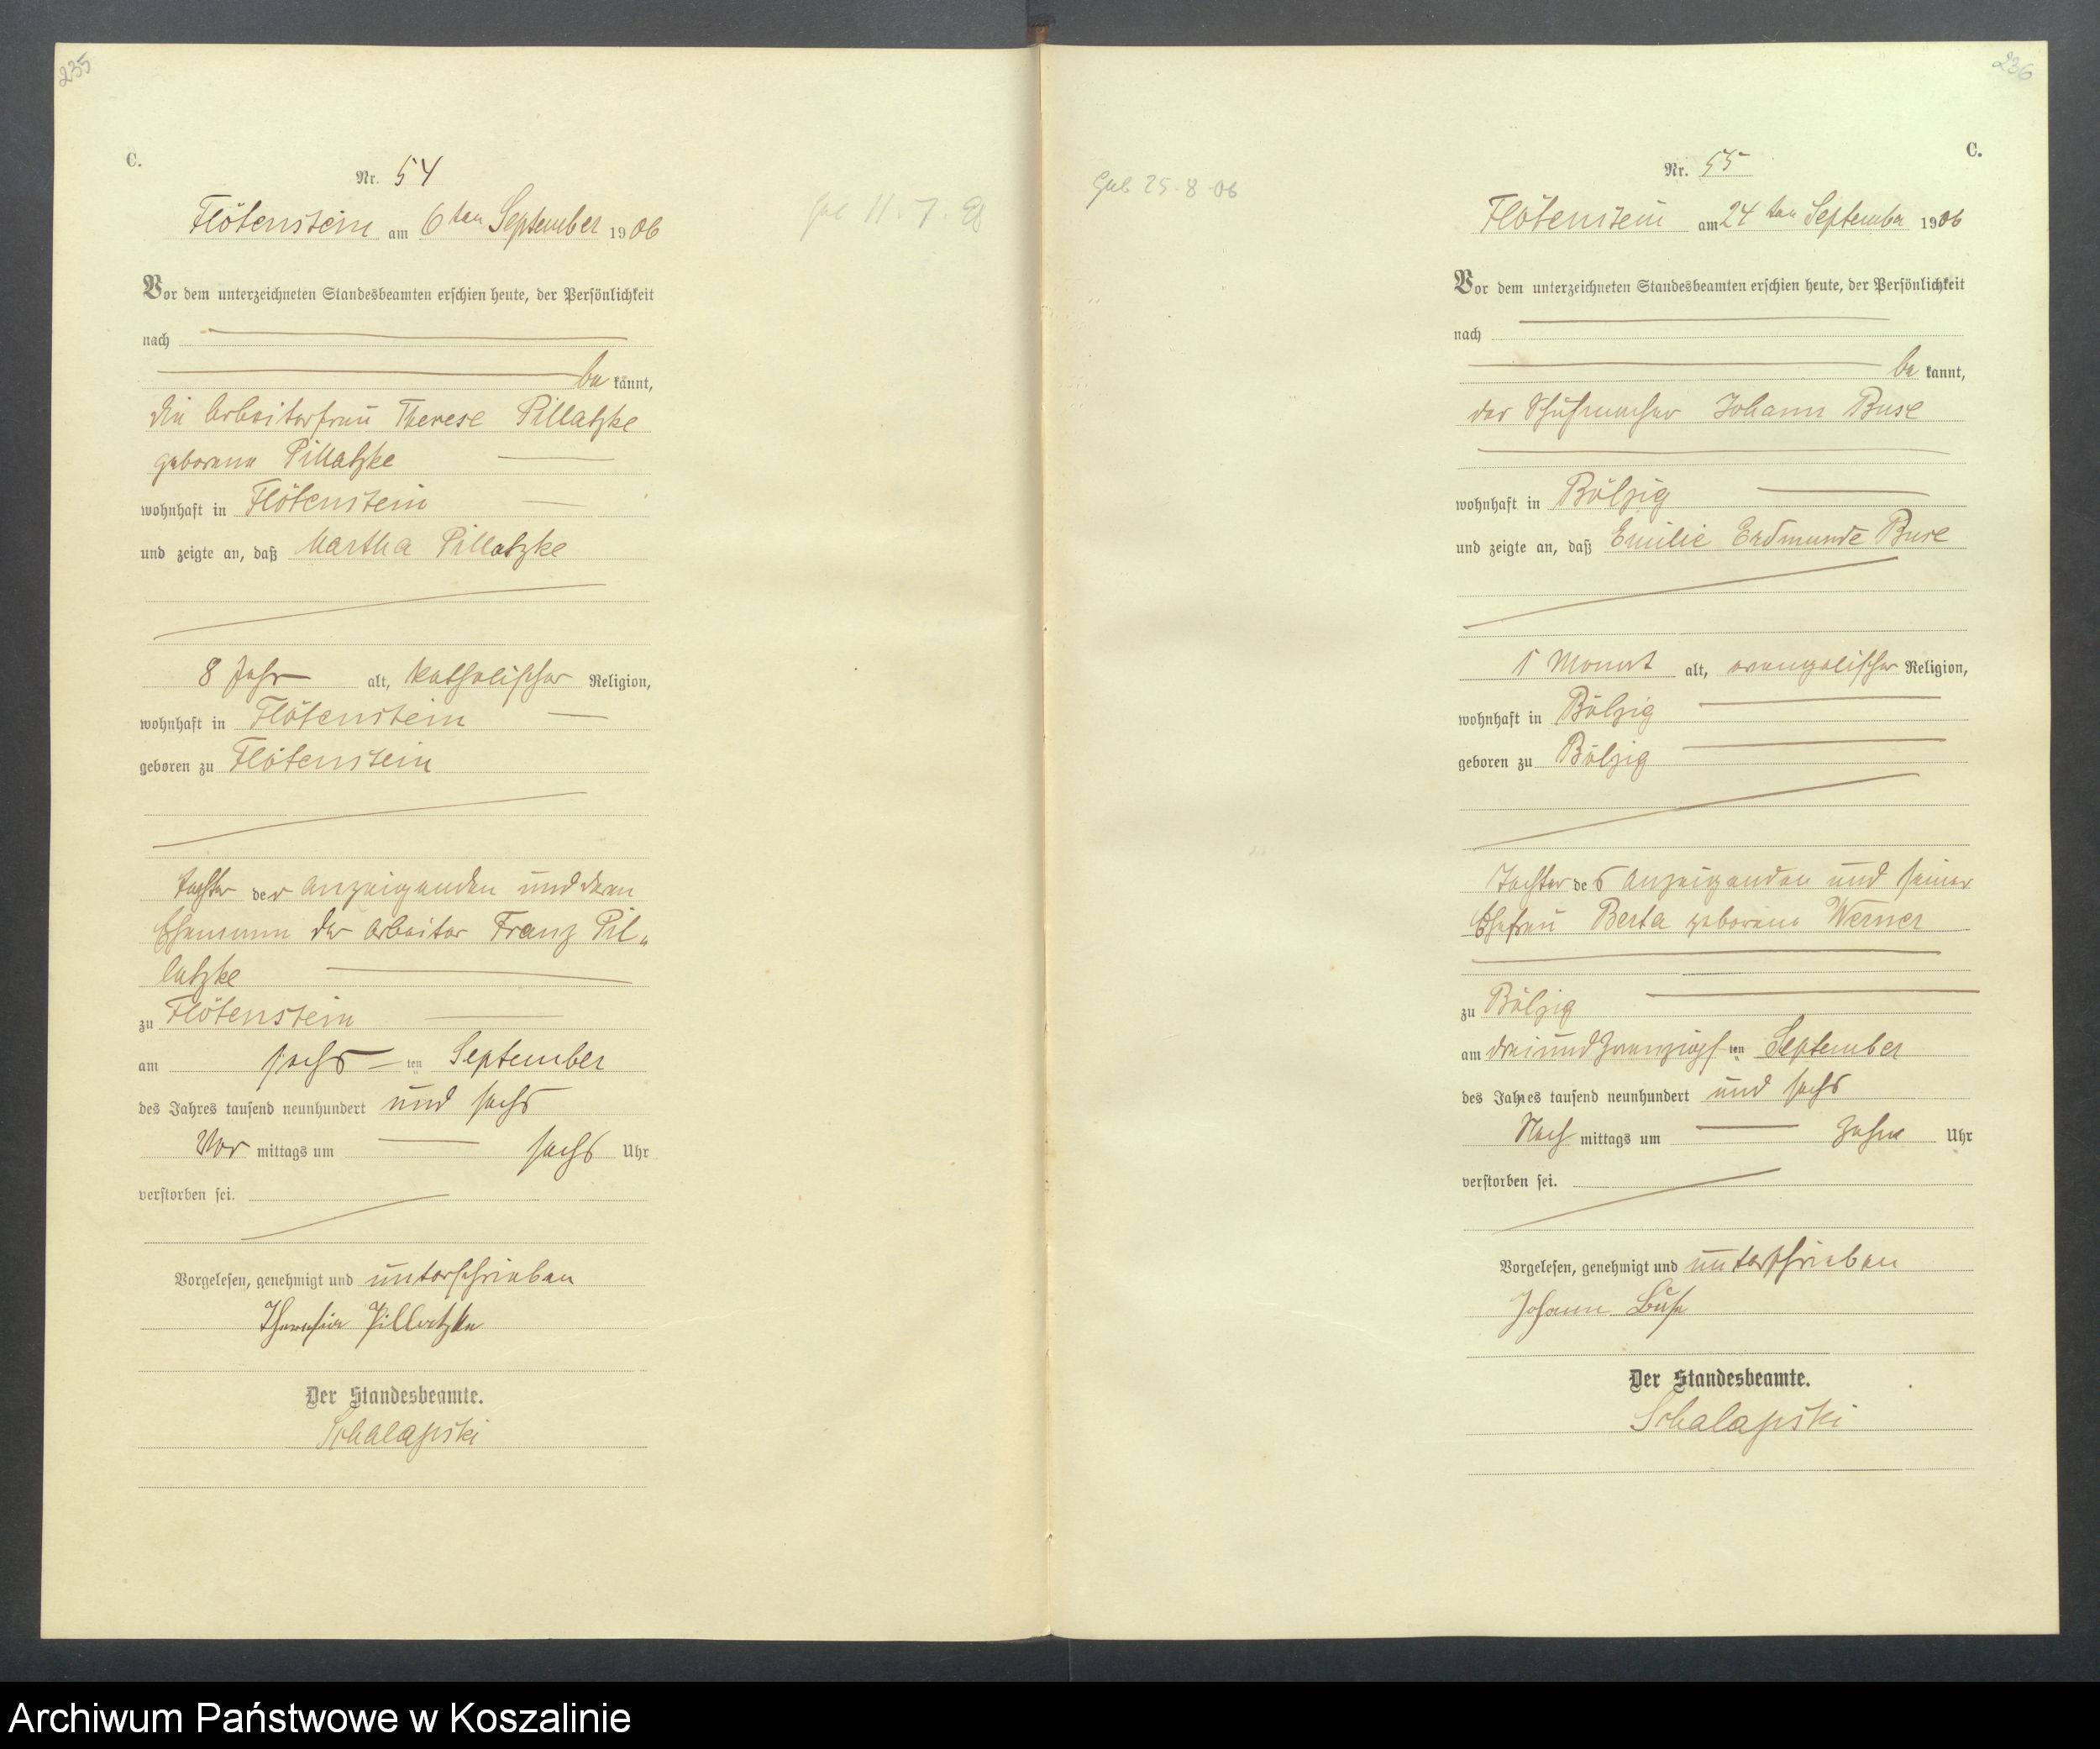 235
C.
Nr. 54
Flötenstein am 6ten September 1906
Vor dem unterzeichneten Standesbeamten erschien heute, der Persönlichkeit
nach
be kannt,
die Arbeiterfrau Therese Pillatzke
geborene Pillatzke
wohnhaft in Flötenstein
und zeigte an, daß Martha Pillatzke
8 Jahr alt, katholischer Religion,
wohnhaft in Flötenstein
geboren zu Flötenstein
Tochter der Anzeigenden und deren
Ehemann der Arbeiter Franz Pil„
latzke
zu Flötenstein
am sechsten September
des Jahres tausend neunhundert und sechs
Vor mittags um sechs Uhr
verstorben sei.
Vorgelesen, genehmigt und unterschrieben
Theresia Pillatzke
Der Standesbeamte.
Schalapski
11. 7.
236
Geb 25.8.06
C.
Nr. 55
Flötenstein am 24ten September 1906
Vor dem unterzeichneten Standesbeamten erschien heute, der Persönlichkeit
nach
be kannt,
der Schuhmacher Johann Buse
wohnhaft in Bölzig
und zeigte an, daß Emilie Erdmunde Buse
1 Monat alt, evangelischer Religion,
wohnhaft in Bölzig
geboren zu Bölzig
Tochter des Anzeigenden und seiner
Ehefrau Berta geborene Werner
zu Bölzig
am dreiundzwanzigsten September
des Jahres tausend neunhundert und sechs
Nach mittags um zehn Uhr
verstorben sei.
Vorgelesen, genehmigt und unterschrieben
Johann Buse
Der Standesbeamte.
Schalapski
Archiwum Państwowe w Koszalinie